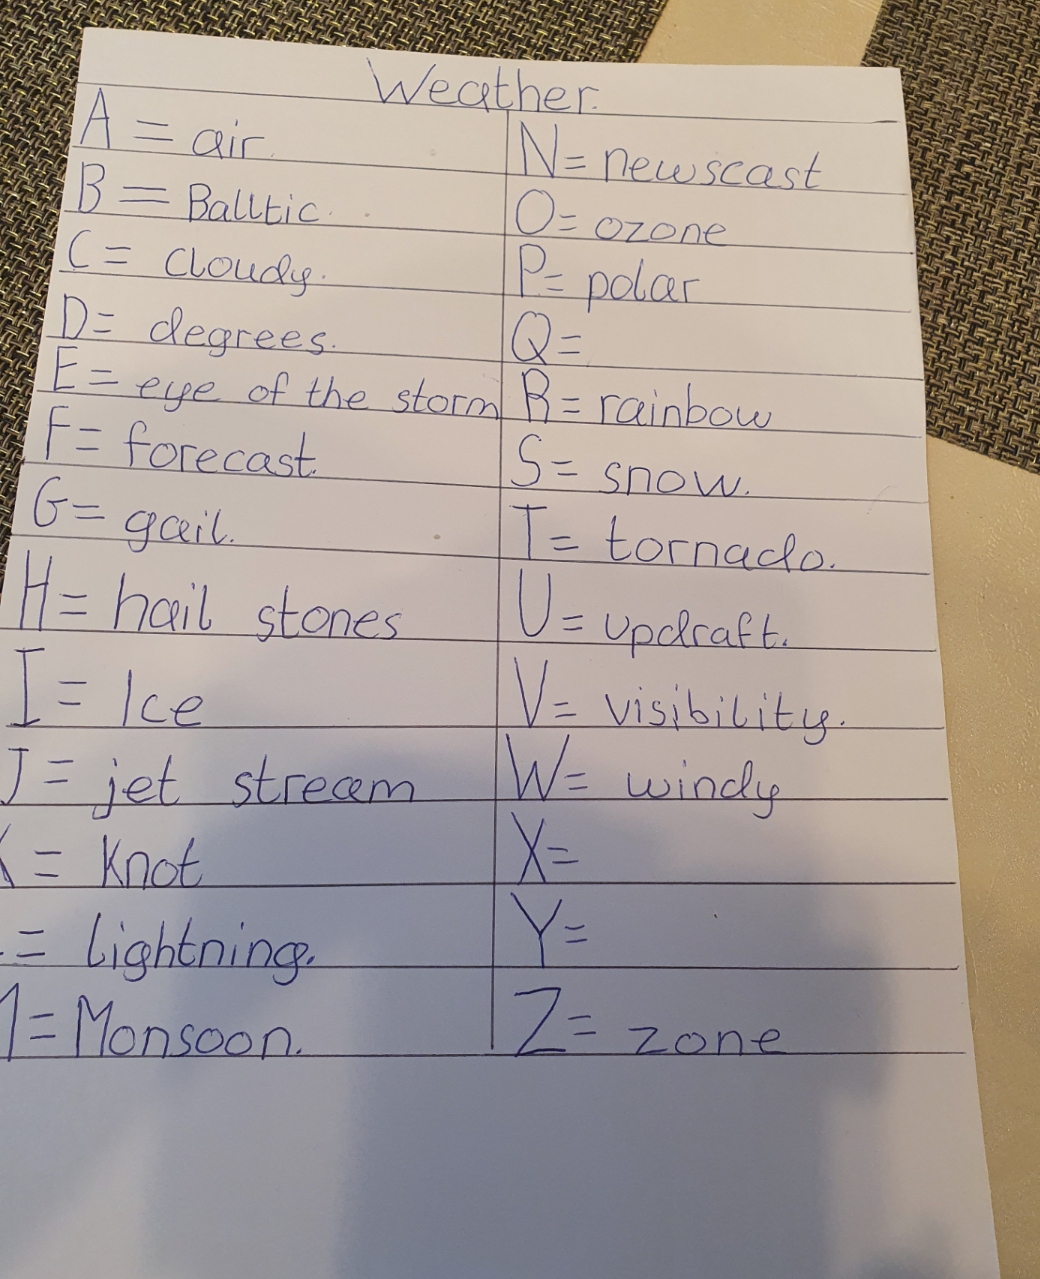 Weather.
A = air.
B = Balltic.
C = cloudy.
D= degrees.
E= eye of the storm
F= forecast.
G= gail.
H= hail stones
I= Ice
J= jet stream
K= Knot
L= Lightning.
M= Monsoon.
N= newscast
O= ozone
P= polar
Q=
R= rainbow
S= snow.
T= tornado.
U= updraft.
V= visibility.
W= windy
X=
Y=
Z= zone